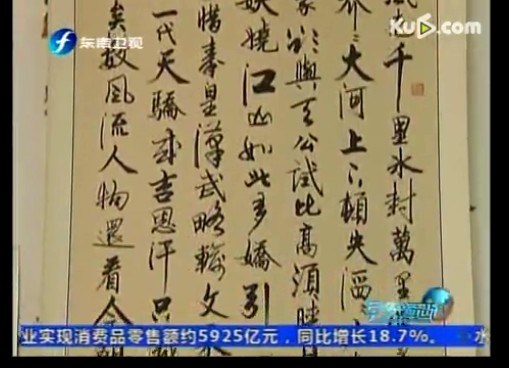 东南卫视
Ku6.com
千里冰封萬里
大河上下頓失滔
欲與天公試比高須晴
妖嬈江山如此多嬌引
惜秦皇漢武略輸文
一代天驕成吉思汗只
矣數風流人物還看今朝
业实现消费品零售额约5925亿元，同比增长18.7%。 水